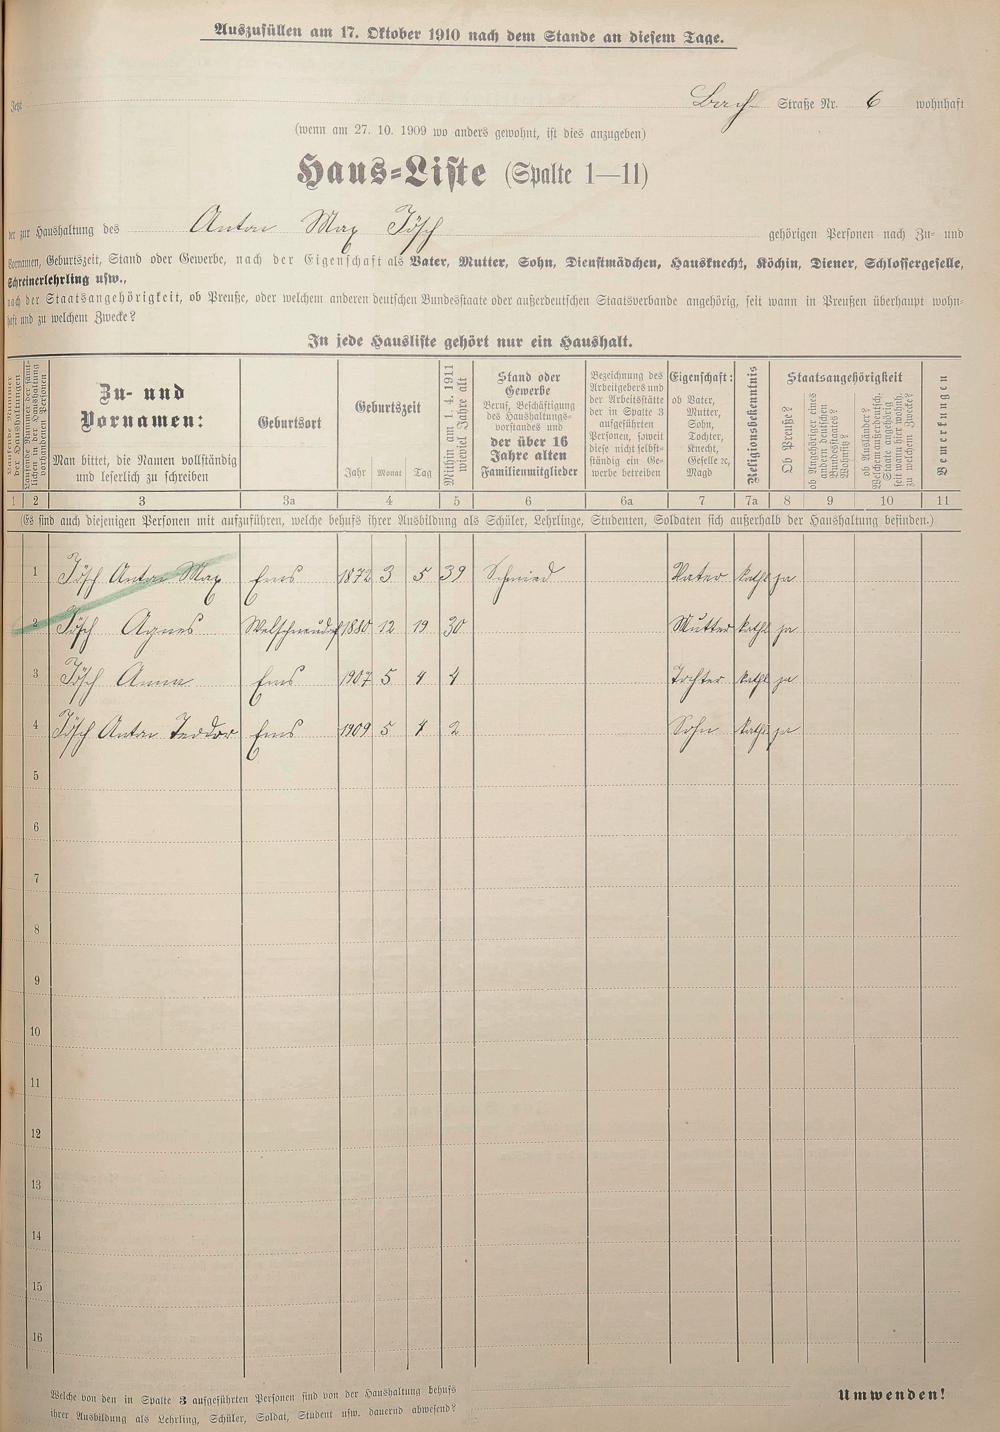 Auszufüllen am 17. Oktober 1910 nach dem Stande an diesem Tage.
Jetzt Bach Straße Nr. 6 wohnhaft
(wenn am 27. 10. 1909 wo anders gewohnt, ist dies anzugeben)
Haus-Liste (Spalte 1—11)
der zur Haushaltung des Anton Max gehörigen Personen nach Zu- und
Vornamen, Geburtszeit, Stand oder Gewerbe, nach der Eigenschaft als Vater, Mutter, Sohn, Dienstmädchen, Hausknecht, Köchin, Diener, Schlossergeselle,
Schreinerlehrling usw.,
nach der Staatsangehörigkeit, ob Preuße, oder welchem anderen deutschen Bundesstaate oder außerdeutschen Staatsverbande angehörig, seit wann in Preußen überhaupt wohn-
haft und zu welchem Zwecke?
In jede Hausliste gehört nur ein Haushalt.
Laufende Nummer der Haushaltungen
Laufende Nummer der sämt-
lichen in der Haushaltung
vorhandenen Personen
Zu- und
Vornamen:
Man bittet, die Namen vollständig
und leserlich zu schreiben
Geburtsort
Geburtszeit
Jahr Monat Tag
Mithin am 1. 4. 1911
wieviel Jahre alt
Stand oder
Gewerbe
Beruf, Beschäftigung
des Haushaltungs-
vorstandes und
der über 16
Jahre alten
Familienmitglieder
Bezeichnung des
Arbeitgebers und
der Arbeitsstätte
der in Spalte 3
aufgeführten
Personen, soweit
diese nicht selbst-
ständig ein Ge-
werbe betreiben
Eigenschaft:
ob Vater,
Mutter,
Sohn,
Tochter,
Knecht,
Geselle ꝛc,
Magd
Religionsbekenntnis
Staatsangehörigkeit
Ob Preuße?
ob Angehöriger eines
andern deutschen
Bundesstaates?
Wohnsitz?
ob Ausländer?
Welchem außerdeutsch.
Staate angehörig
seit wann hier wohnh.
zu welchem Zwecke?
Bemerkungen
1 2 3 3a 4 5 6 6a 7 7a 8 9 10 11
(Es sind auch diejenigen Personen mit aufzuführen, welche behufs ihrer Ausbildung als Schüler, Lehrlinge, Studenten, Soldaten sich außerhalb der Haushaltung befinden.)
1 Anton Max Ems 1872 3 5 39 Schmied Vater kath ja
2 Agnes Welschneudorf 1880 12 19 30 Mutter kath ja
3 Anna Ems 1907 5 4 4 Tochter kath ja
4 Anton Ems 1909 5 4 2 Sohn kath ja
5
6
7
8
9
10
11
12
13
14
15
16
Welche von den in Spalte 3 aufgeführten Personen sind von der Haushaltung behufs
ihrer Ausbildung als Lehrling, Schüler, Soldat, Student usw. dauernd abwesend?
Umwenden!